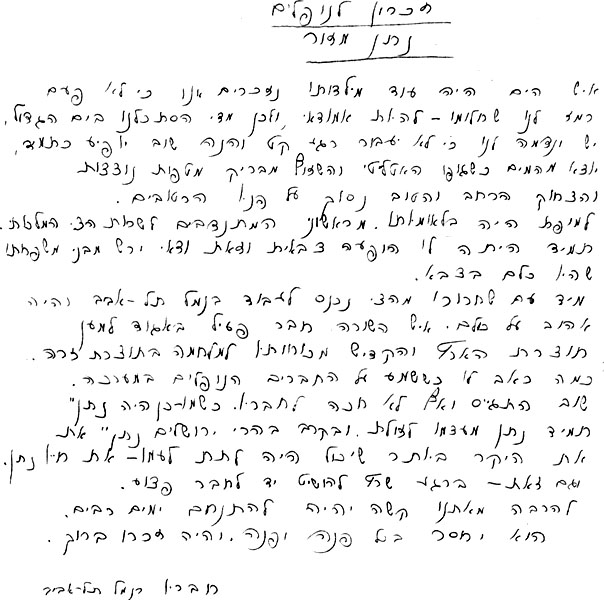 זכרון לנופלים
נתן מזור
איש הים היה עוד מילדותו נזכרים אנו כי לא פעם
רמז לנו שחלומו - להיות אמודאי, ולכן מדי הסתכלנו בים הגדול,
יש ונדמה לנו כי לא יעבור רגע קט והנה שוב יופיע כתמיד,
יוצא מהמים כשגופו האטלטי והשזוף מבריק מטפות נוצצות
והצחוק הרחב והטוב נסוך על פניו הרטובים.
למופת היה בלאומיותו. מראשוני המתנדבים לשרות הצי המלכותי.
תמיד היתה לו הופעה צבאית וזאת ודאי ירש מבני משפחתו
שהיו כלם בצבא.
מיד עם שחרורו מהצי נכנס לעבוד בנמל תל-אביב והיה
אהוב על כלם. איש השורה חבר פעיל באגוד למען
תוצרת הארץ והקדיש מכוחותיו למלחמה בתוצרת זרה.
כמה כאב לו כששמע על החברים הנופלים במערכה.
שוב התגיס ואף לא חכה לחבריו. כשמו-כן היה נתן"
תמיד נתן מעצמו לזולת. ובקרב בהרי ירושלים נתן" את
את היקר ביותר שיכול היה לתת לעמו - את חייו נתן.
וגם זאת - ברגע שרץ להושיט יד לחבר פצוע.
להרבה מאתנו קשה יהיה להתנחם ימים רבים.
הוא יחסר בכל פנה ופנה. ויהיה זכרו ברוך.
חובריו בנמל תל-אביב